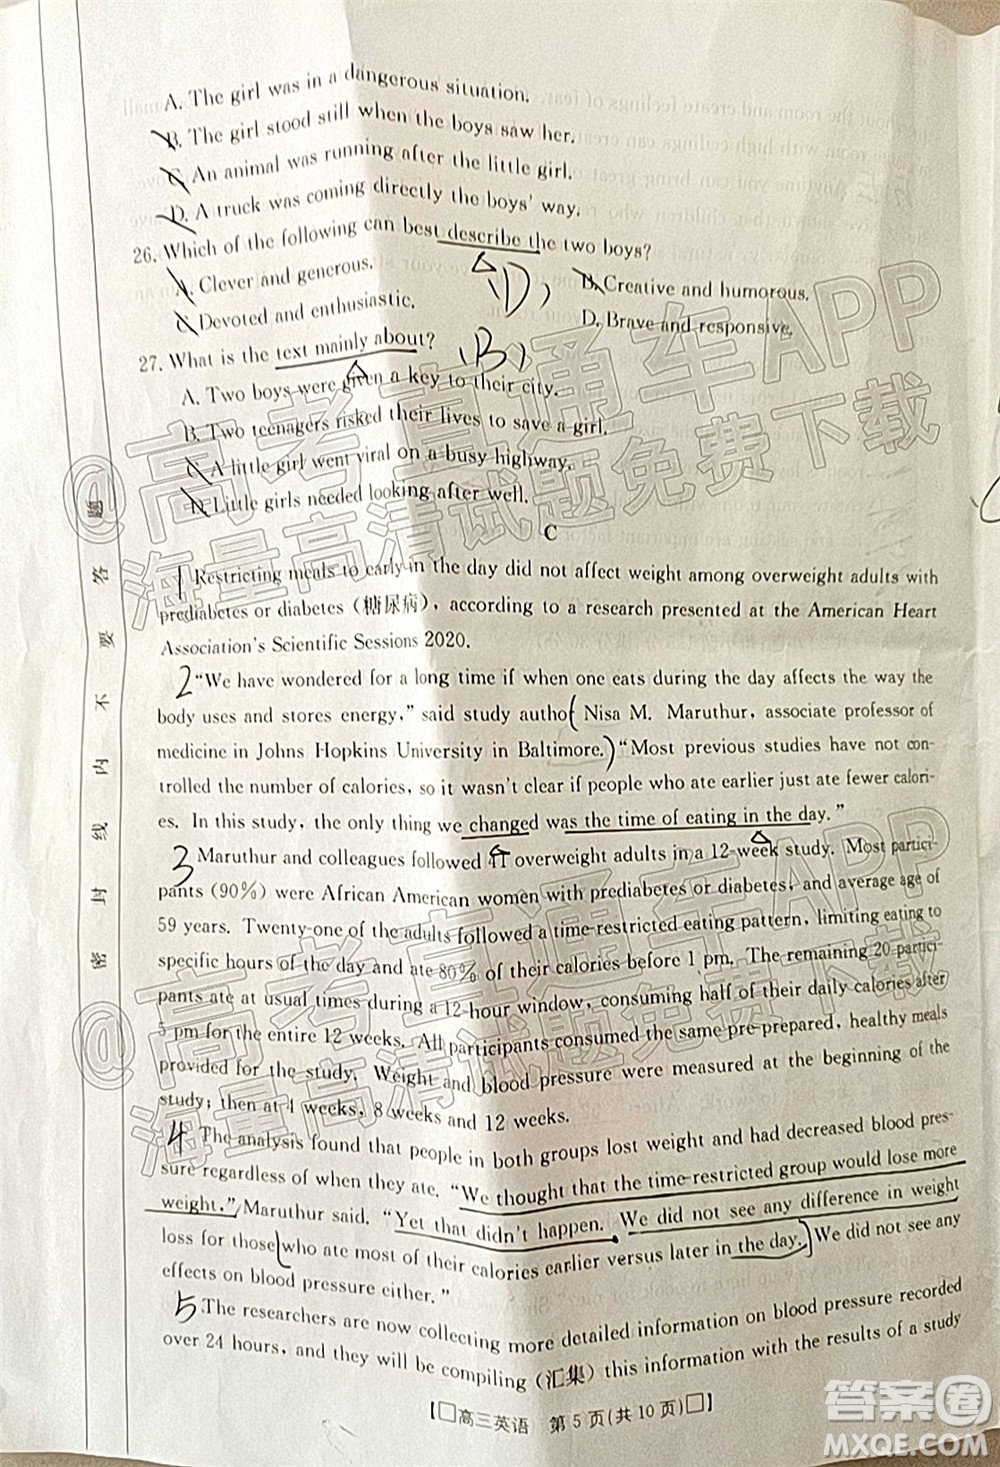 A. The girl was in a dangerous situation.
B. The girl stood still when the boys saw her.
C. An animal was running after the little girl.
D. A truck was coming directly the boys' way.
26. Which of the following can best describe the two boys?
A. Clever and generous.
B. Creative and humorous.
(D)
C. Devoted and enthusiastic.
D. Brave and responsive.
27. What is the text mainly about?
(B)
A. Two boys were given a key to their city.
B. Two teenagers risked their lives to save a girl.
C. A little girl went viral on a busy highway.
D. Little girls needed looking after well.
C
1 Restricting meals to early in the day did not affect weight among overweight adults with
prediabetes or diabetes (糖尿病), according to a research presented at the American Heart
Association's Scientific Sessions 2020.
2 "We have wondered for a long time if when one eats during the day affects the way the
body uses and stores energy," said study author Nisa M. Maruthur, associate professor of
medicine in Johns Hopkins University in Baltimore. "Most previous studies have not con-
trolled the number of calories, so it wasn't clear if people who ate earlier just ate fewer calori-
es. In this study, the only thing we changed was the time of eating in the day."
3 Maruthur and colleagues followed 41 overweight adults in a 12-week study. Most partici-
pants (90%) were African American women with prediabetes or diabetes, and average age of
59 years. Twenty-one of the adults followed a time-restricted eating pattern, limiting eating to
specific hours of the day and ate 80% of their calories before 1 pm. The remaining 20 partici-
pants ate at usual times during a 12-hour window, consuming half of their daily calories after
5 pm for the entire 12 weeks. All participants consumed the same pre-prepared, healthy meals
provided for the study. Weight and blood pressure were measured at the beginning of the
study; then at 4 weeks, 8 weeks and 12 weeks.
4 The analysis found that people in both groups lost weight and had decreased blood pres-
sure regardless of when they ate. "We thought that the time-restricted group would lose more
weight," Maruthur said. "Yet that didn't happen. We did not see any difference in weight
loss for those who ate most of their calories earlier versus later in the day. We did not see any
effects on blood pressure either."
5 The researchers are now collecting more detailed information on blood pressure recorded
over 24 hours, and they will be compiling (汇集) this information with the results of a study
【□高三英语 第 5 页(共 10 页)□】
密 封 线 内 不 要 答 题
@高考直通车APP
海量高清试题免费下载
@高考直通车APP
海量高清试题免费下载
答案圈
MXQE.COM